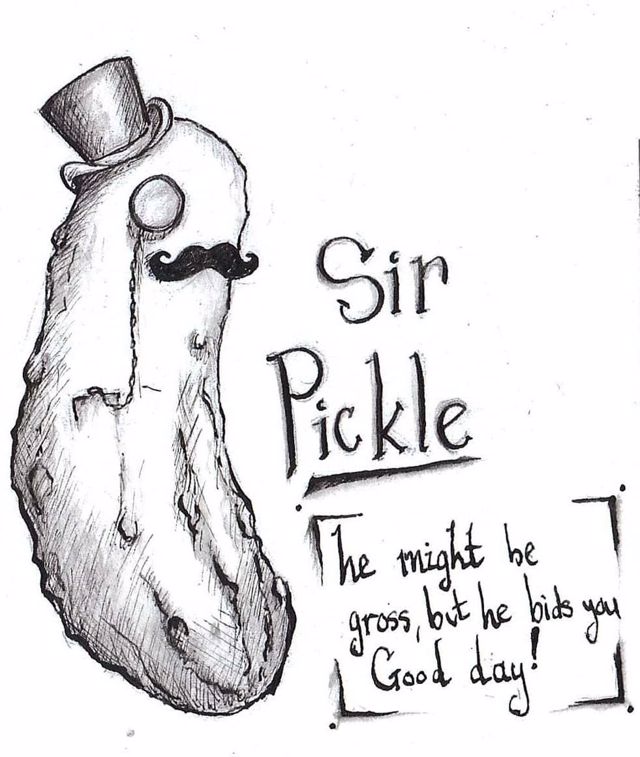 Sir
Pickle
he might be
gross, but he bids you
Good day!